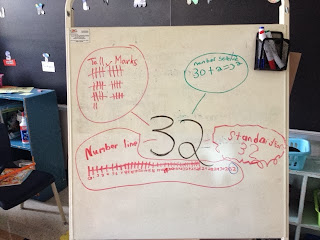 Tally Marks
number sentence
30 + 2 = 32
32
Number line
Standard
32